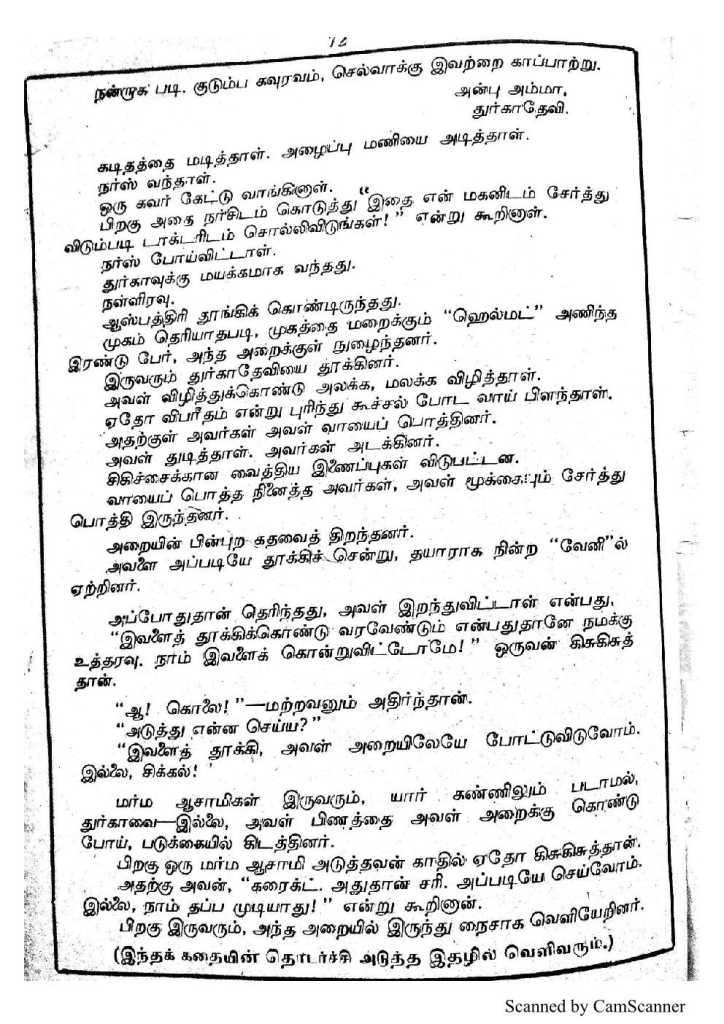 12
நன்முக படி. குடும்ப கவுரவம், செல்வாக்கு இவற்றை காப்பாற்று.
அன்பு அம்மா,
துர்காதேவி.
கடிதத்தை மடித்தாள். அழைப்பு மணியை அடித்தாள்.
நர்ஸ் வந்தாள்.
ஒரு கவர் கேட்டு வாங்கினாள்.
பிறகு அதை நர்சிடம் கொடுத்து “இதை என் மகனிடம் சேர்த்து
விடும்படி டாக்டரிடம் சொல்லிவிடுங்கள்!” என்று கூறினாள்.
நர்ஸ் போய்விட்டாள்.
துர்காவுக்கு மயக்கமாக வந்தது.
நள்ளிரவு.
ஆஸ்பத்திரி தூங்கிக் கொண்டிருந்தது.
முகம் தெரியாதபடி, முகத்தை மறைக்கும் “ஹெல்மட்” அணிந்த
இரண்டு பேர், அந்த அறைக்குள் நுழைந்தனர்.
இருவரும் துர்காதேவியை தூக்கினர்.
அவள் விழித்துக்கொண்டு அலக்க, மலக்க விழித்தாள்.
ஏதோ விபரீதம் என்று புரிந்து கூச்சல் போட வாய் பிளந்தாள்.
அதற்குள் அவர்கள் அவள் வாயைப் பொத்தினர்.
அவள் துடித்தாள். அவர்கள் அடக்கினர்.
சிகிச்சைக்கான வைத்திய இணைப்புகள் விடுபட்டன.
வாயைப் பொத்த நினைத்த அவர்கள், அவள் மூக்கையும் சேர்த்து
பொத்தி இருந்தனர்.
அறையின் பின்புற கதவைத் திறந்தனர்.
அவளை அப்படியே தூக்கிச் சென்று, தயாராக நின்ற “வேனி”ல்
ஏற்றினர்.
அப்போதுதான் தெரிந்தது, அவள் இறந்துவிட்டாள் என்பது.
“இவளைத் தூக்கிக்கொண்டு வரவேண்டும் என்பதுதானே நமக்கு
உத்தரவு. நாம் இவளைக் கொன்றுவிட்டோமே!” ஒருவன் கிசுகிசுத்
தான்.
“ஆ! கொலை!”—மற்றவனும் அதிர்ந்தான்.
“அடுத்து என்ன செய்ய?”
“இவளைத் தூக்கி, அவள் அறையிலேயே போட்டுவிடுவோம்.
இல்லை, சிக்கல்!
மர்ம ஆசாமிகள் இருவரும், யார் கண்ணிலும் படாமல்,
துர்காவை—இல்லை, அவள் பிணத்தை அவள் அறைக்கு கொண்டு
போய், படுக்கையில் கிடத்தினர்.
பிறகு ஒரு மர்ம ஆசாமி அடுத்தவன் காதில் ஏதோ கிசுகிசுத்தான்.
அதற்கு அவன், “கரைக்ட். அதுதான் சரி. அப்படியே செய்வோம்.
இல்லை, நாம் தப்ப முடியாது!” என்று கூறினான்.
பிறகு இருவரும், அந்த அறையில் இருந்து நைசாக வெளியேறினர்.
(இந்தக் கதையின் தொடர்ச்சி அடுத்த இதழில் வெளிவரும்.)
Scanned by CamScanner